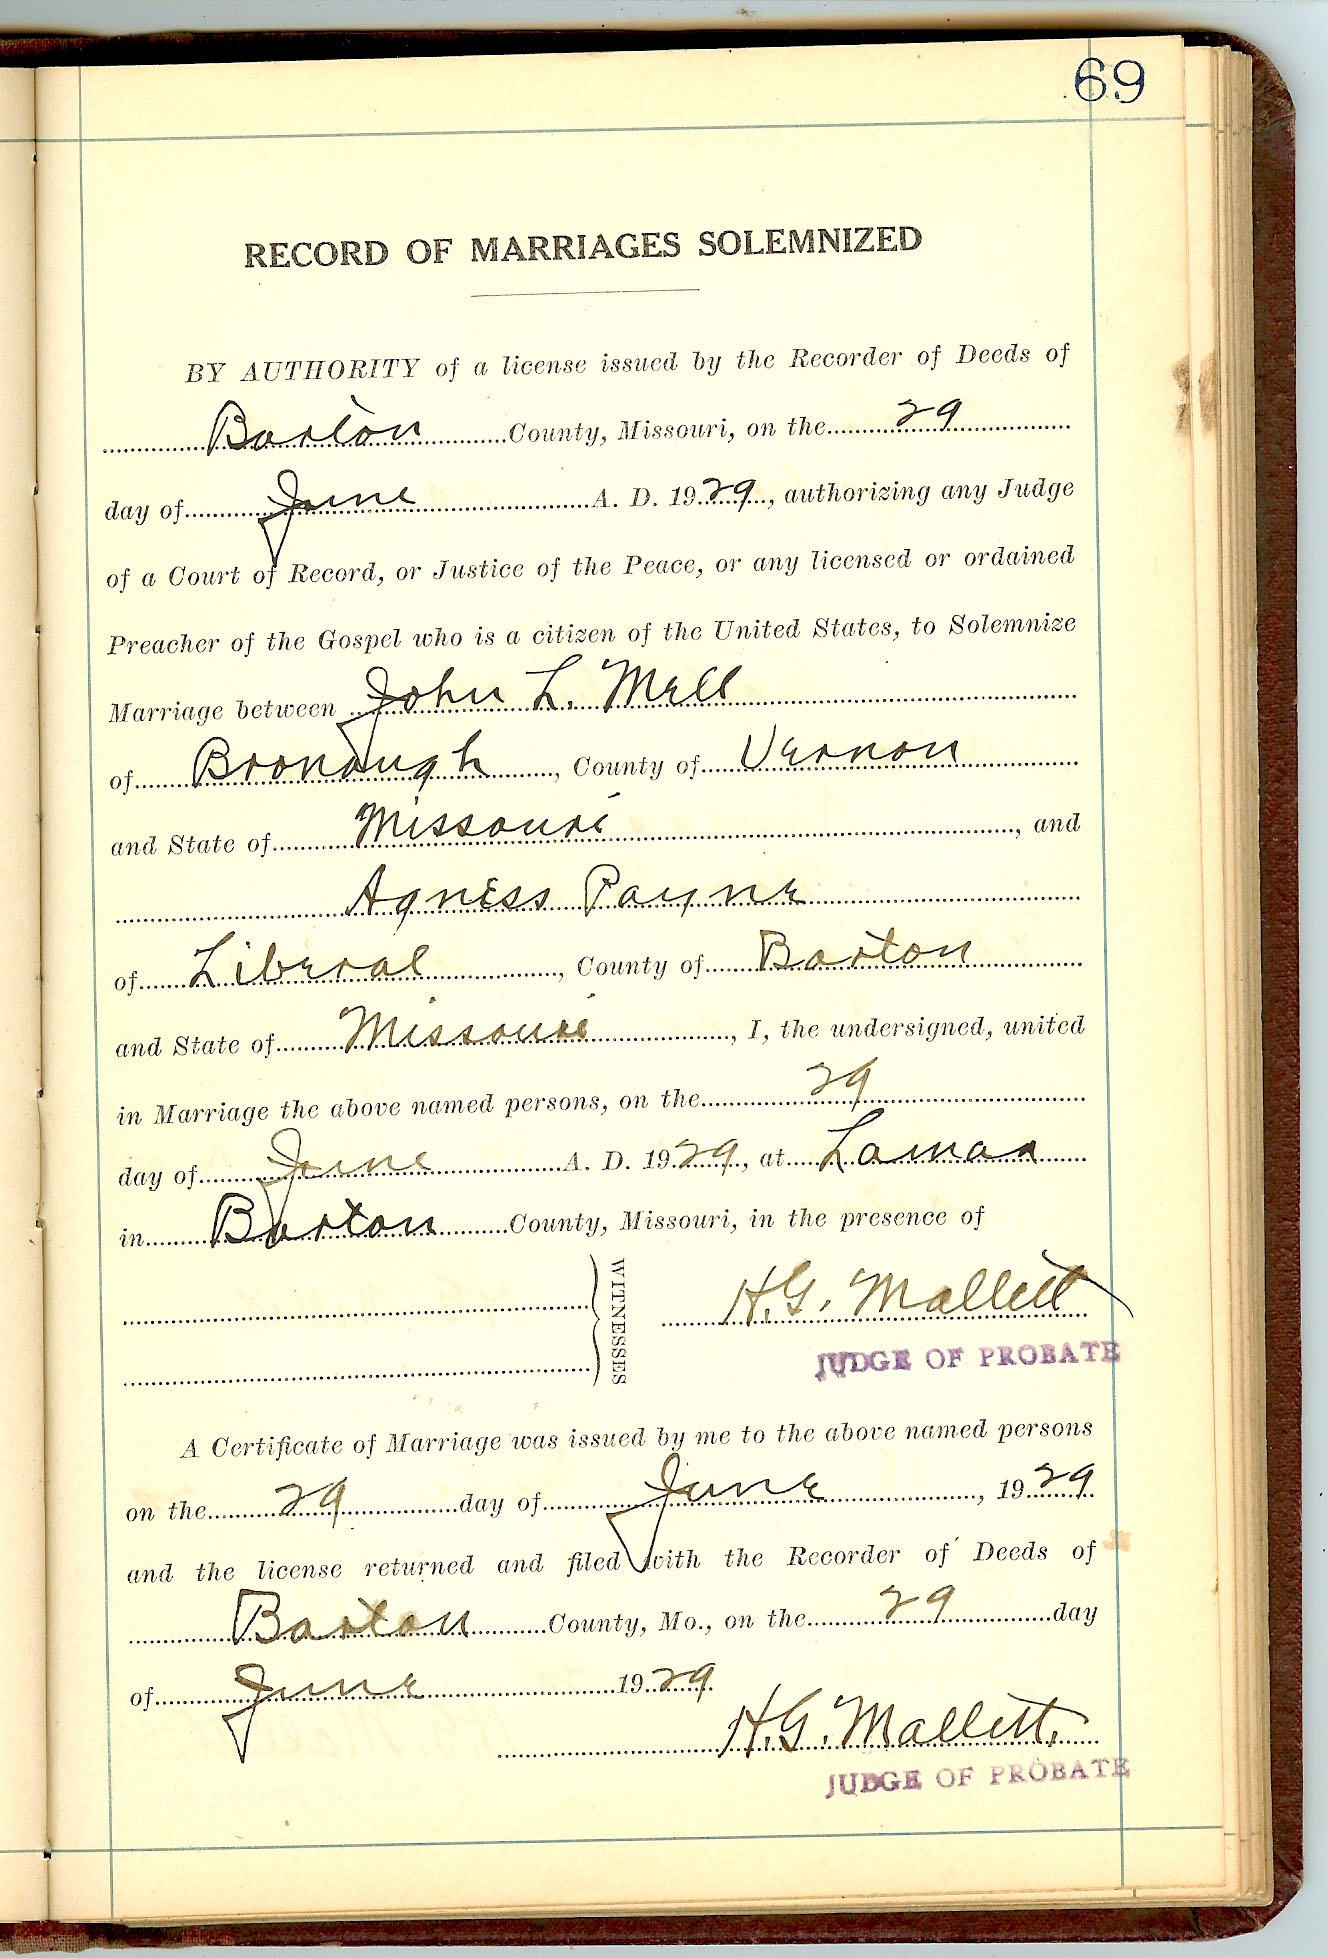 69
RECORD OF MARRIAGES SOLEMNIZED
BY AUTHORITY of a license issued by the Recorder of Deeds of
Barton County, Missouri, on the 29
day of June A. D. 1929, authorizing any Judge
of a Court of Record, or Justice of the Peace, or any licensed or ordained
Preacher of the Gospel who is a citizen of the United States, to Solemnize
Marriage between John L. Mell
of Bronaugh, County of Vernon
and State of Missouri, and
Agness Payne
of Liberal, County of Barton
and State of Missouri, I, the undersigned, united
in Marriage the above named persons, on the 29
day of June A. D. 1929, at Lamar
in Barton County, Missouri, in the presence of
WITNESSES
H.G. Mallett
JUDGE OF PROBATE
A Certificate of Marriage was issued by me to the above named persons
on the 29 day of June, 1929
and the license returned and filed with the Recorder of Deeds of
Barton County, Mo., on the 29 day
of June 1929.
H.G. Mallett.
JUDGE OF PROBATE